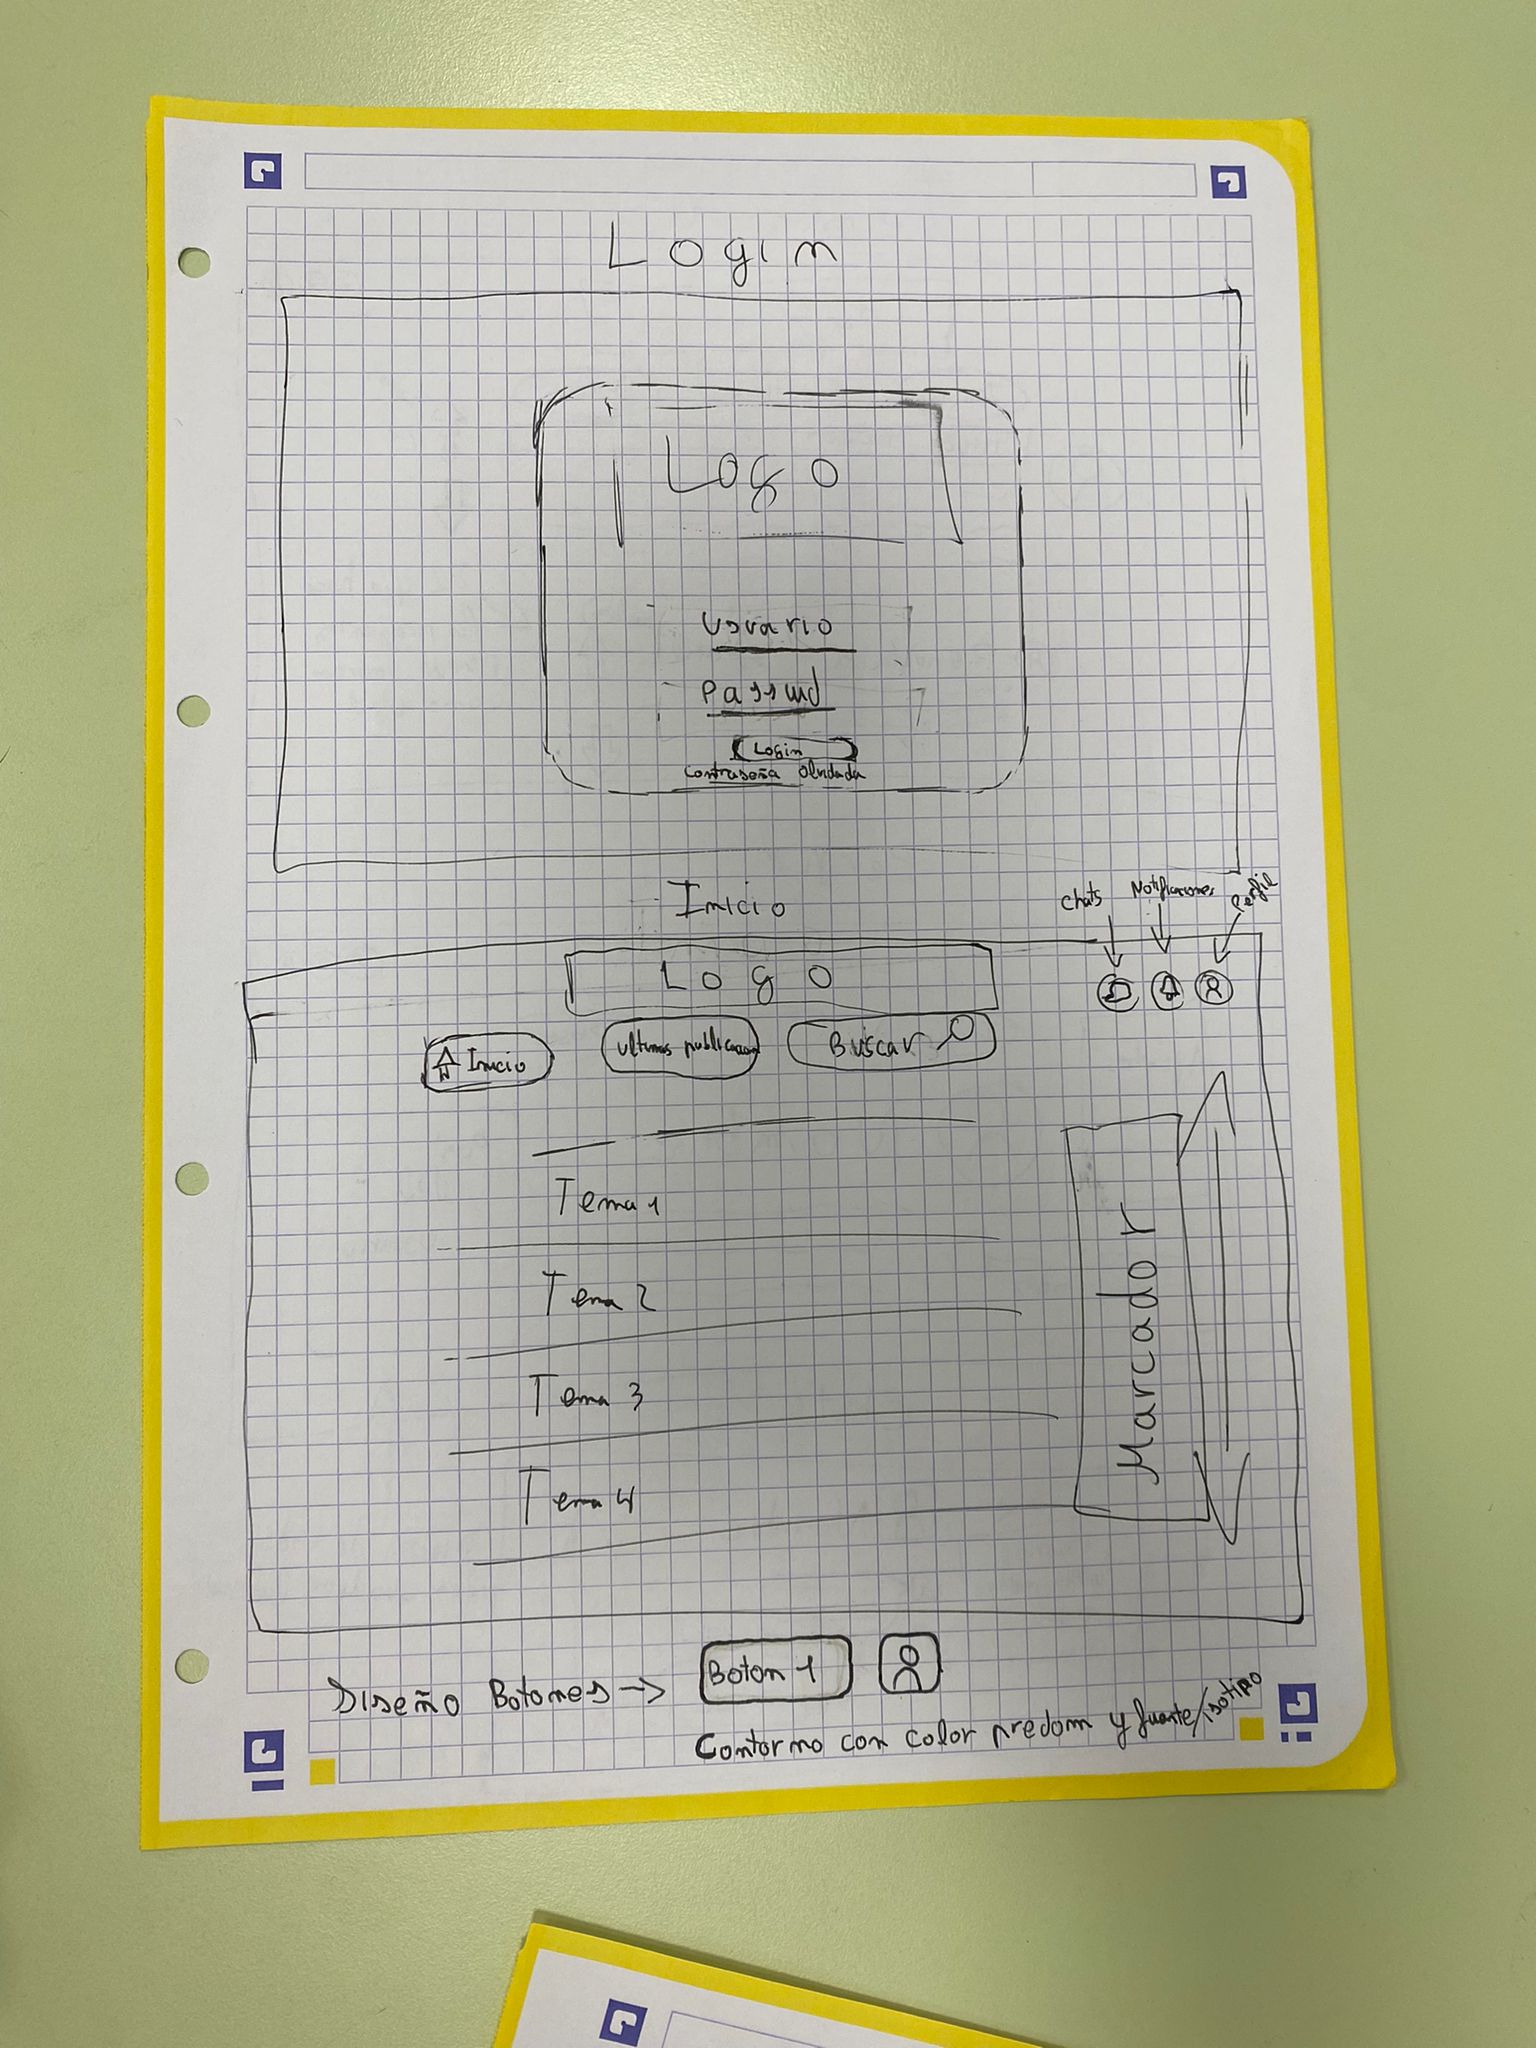 Login
Logo
Usuario
Passwd
Login
Contraseña Olvidada
Inicio
Chats
Notificaciones
Perfil
LOGO
Inicio
Ultimas publicacion
Buscar
Tema 1
Tema 2
Tema 3
Tema 4
Marcador
Diseño Botones → Boton 1
Contorno con color predom y fuente/isotipo